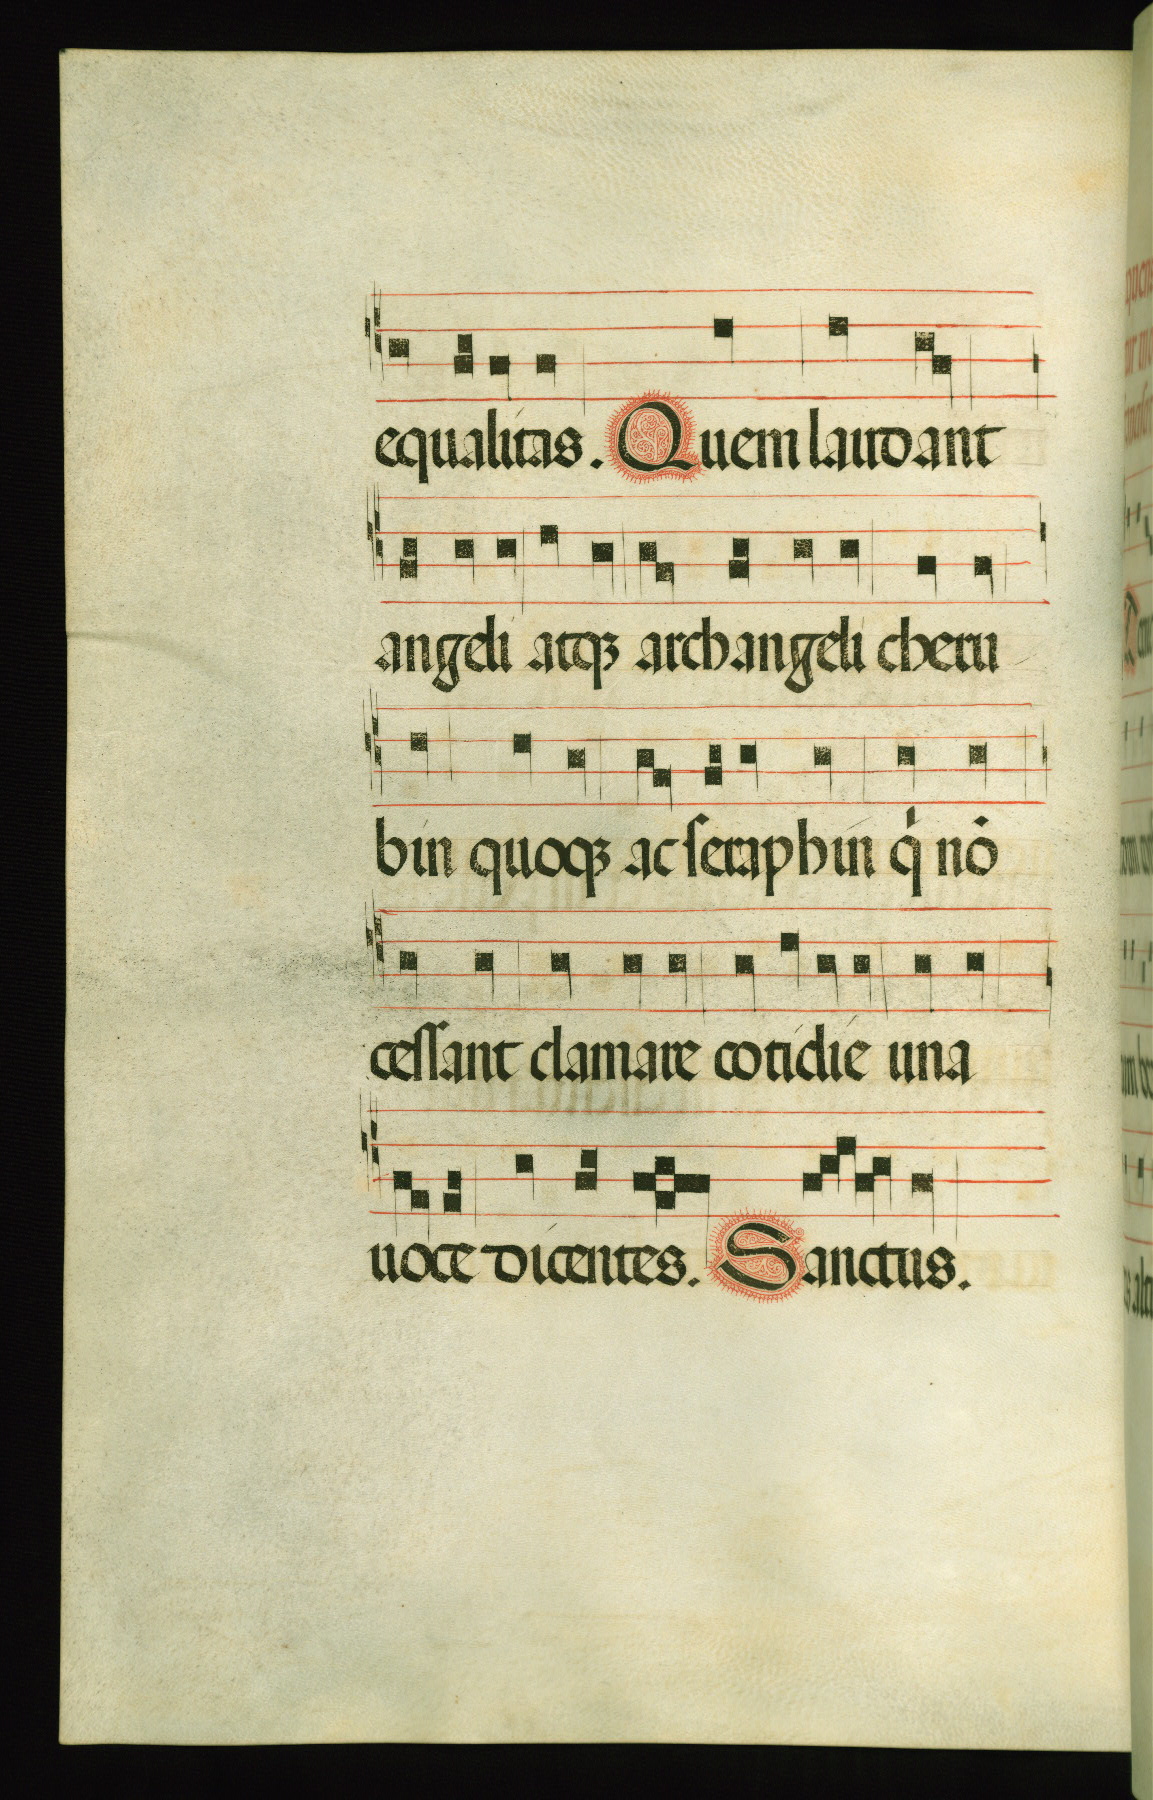 equalitas. Quem laudant
angeli atqꝫ archangeli cheru
bin quoqꝫ ac seraphin q̇ nō
cessant clamare cotidie una
uoce dicentes. Sanctus.